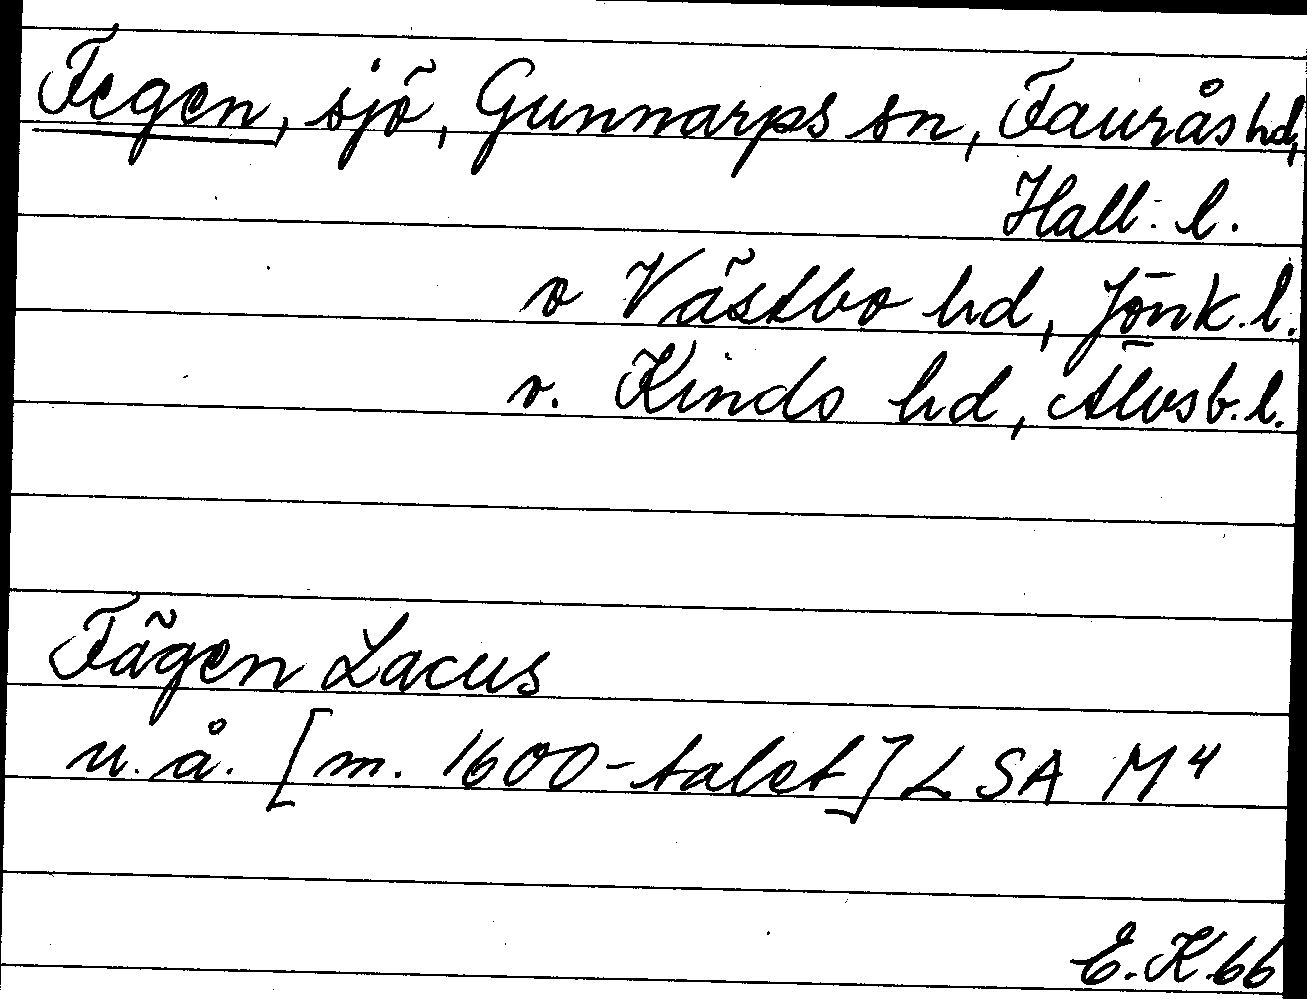 Fegen, sjö, Gunnarps sn, Faurås hd,
Hall. l.
o Västbo hd, Jönk. l.
o. Kinds hd, Älvsb. l.
Fägen Lacus
u. å. [m. 1600-talet] LSA M4
E.K. 66